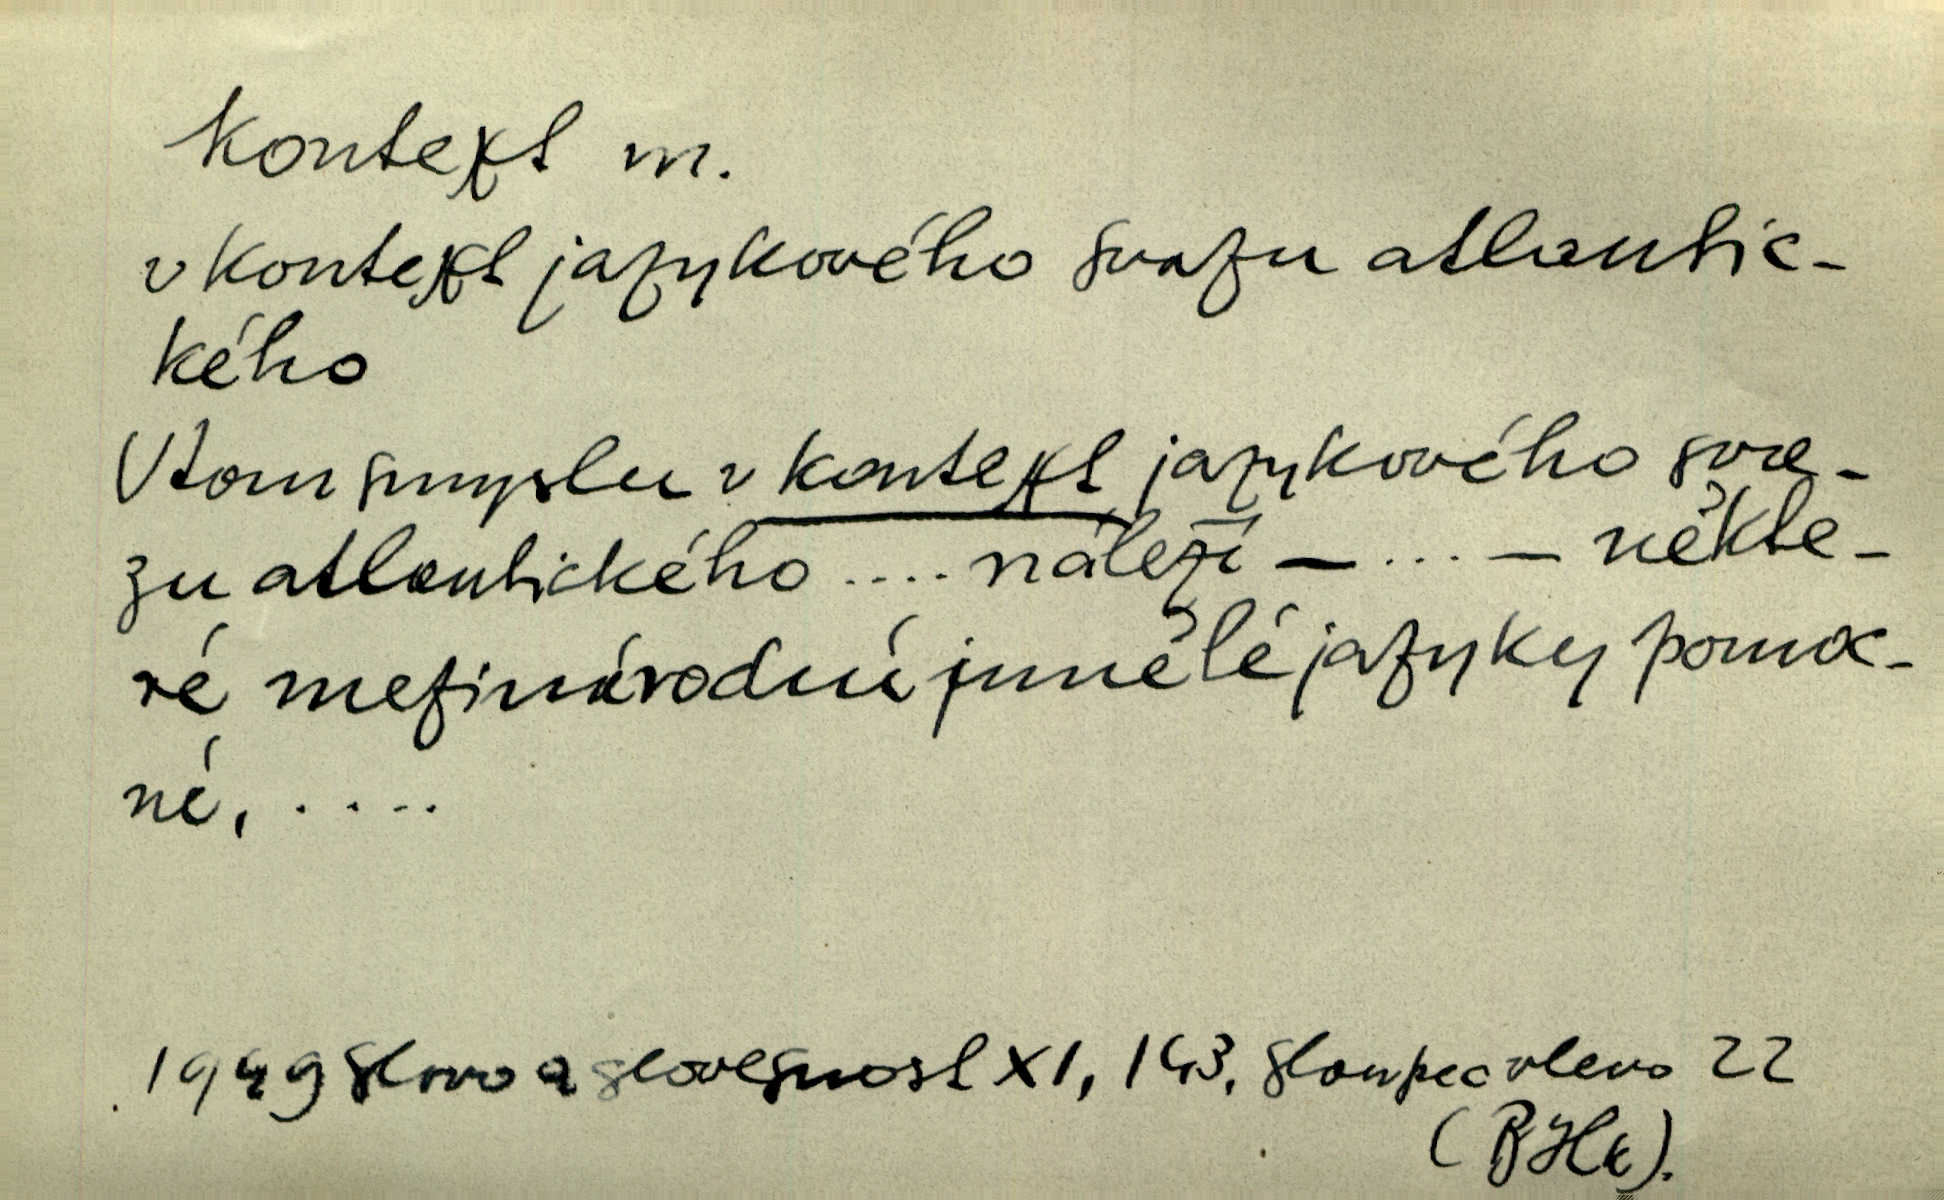 kontext m.
v kontext jazykového svazu atlantic-
kého
V tom smyslu v kontext jazykového sva-
zu atlantického .... náleží — ... — někte-
ré mezinárodní umělé jazyky pomoc-
né, ....
1949 Slovo a slovesnost XI, 143, sloupec vlevo 22